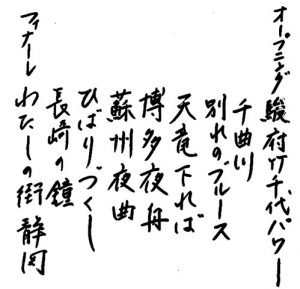 オープニング 駿府竹千代パワー
千曲川
別れのブルース
天竜下れば
博多夜舟
蘇州夜曲
ひばりづくし
長崎の鐘
フィナーレ わたしの街静岡